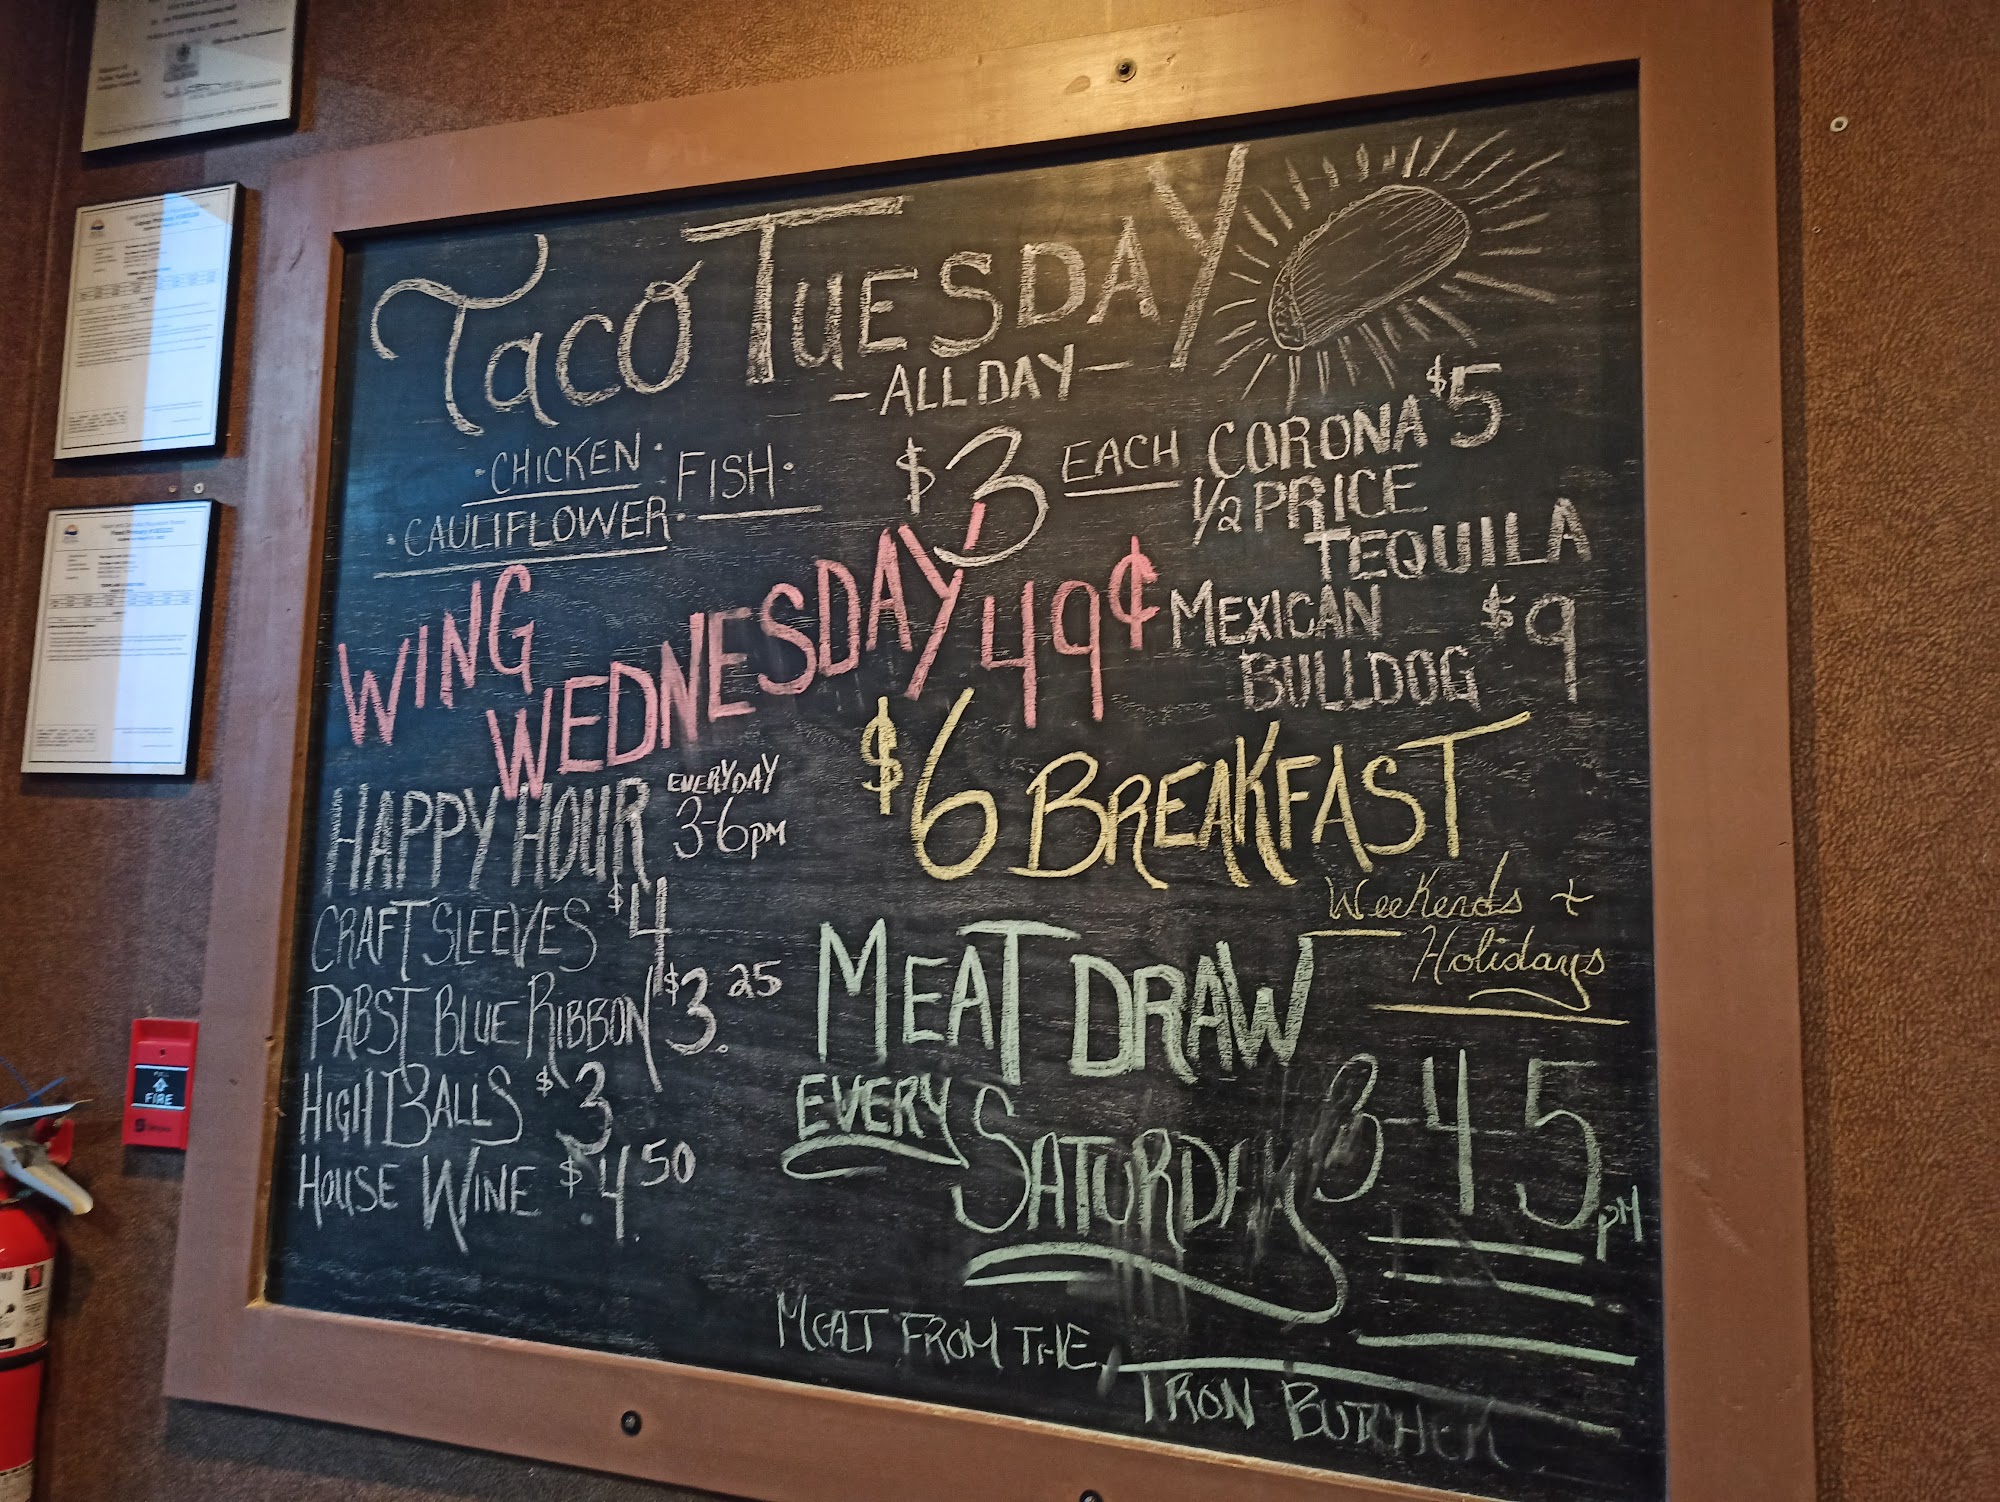 TACO TUESDAY
- ALL DAY -
· CHICKEN · FISH ·
· CAULIFLOWER ·
$3 EACH
CORONA $5
1/2 PRICE
TEQUILA
MEXICAN
BULLDOG $9
WING
WEDNESDAY 49¢
HAPPY HOUR EVERYDAY
3-6PM
CRAFT SLEEVES $4
PABST BLUE RIBBON $3.25
HIGHBALLS $3
HOUSE WINE $4.50
$6 BREAKFAST
Weekends +
Holidays
MEAT DRAW
EVERY SATURDAY 3-4-5PM
MEAT FROM THE
IRON BUTCHER
FIRE